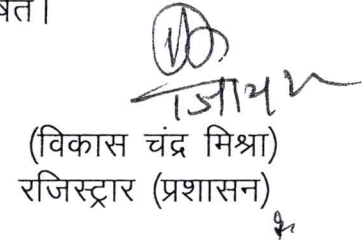 षत।
(विकास चंद्र मिश्रा)
रजिस्ट्रार (प्रशासन)